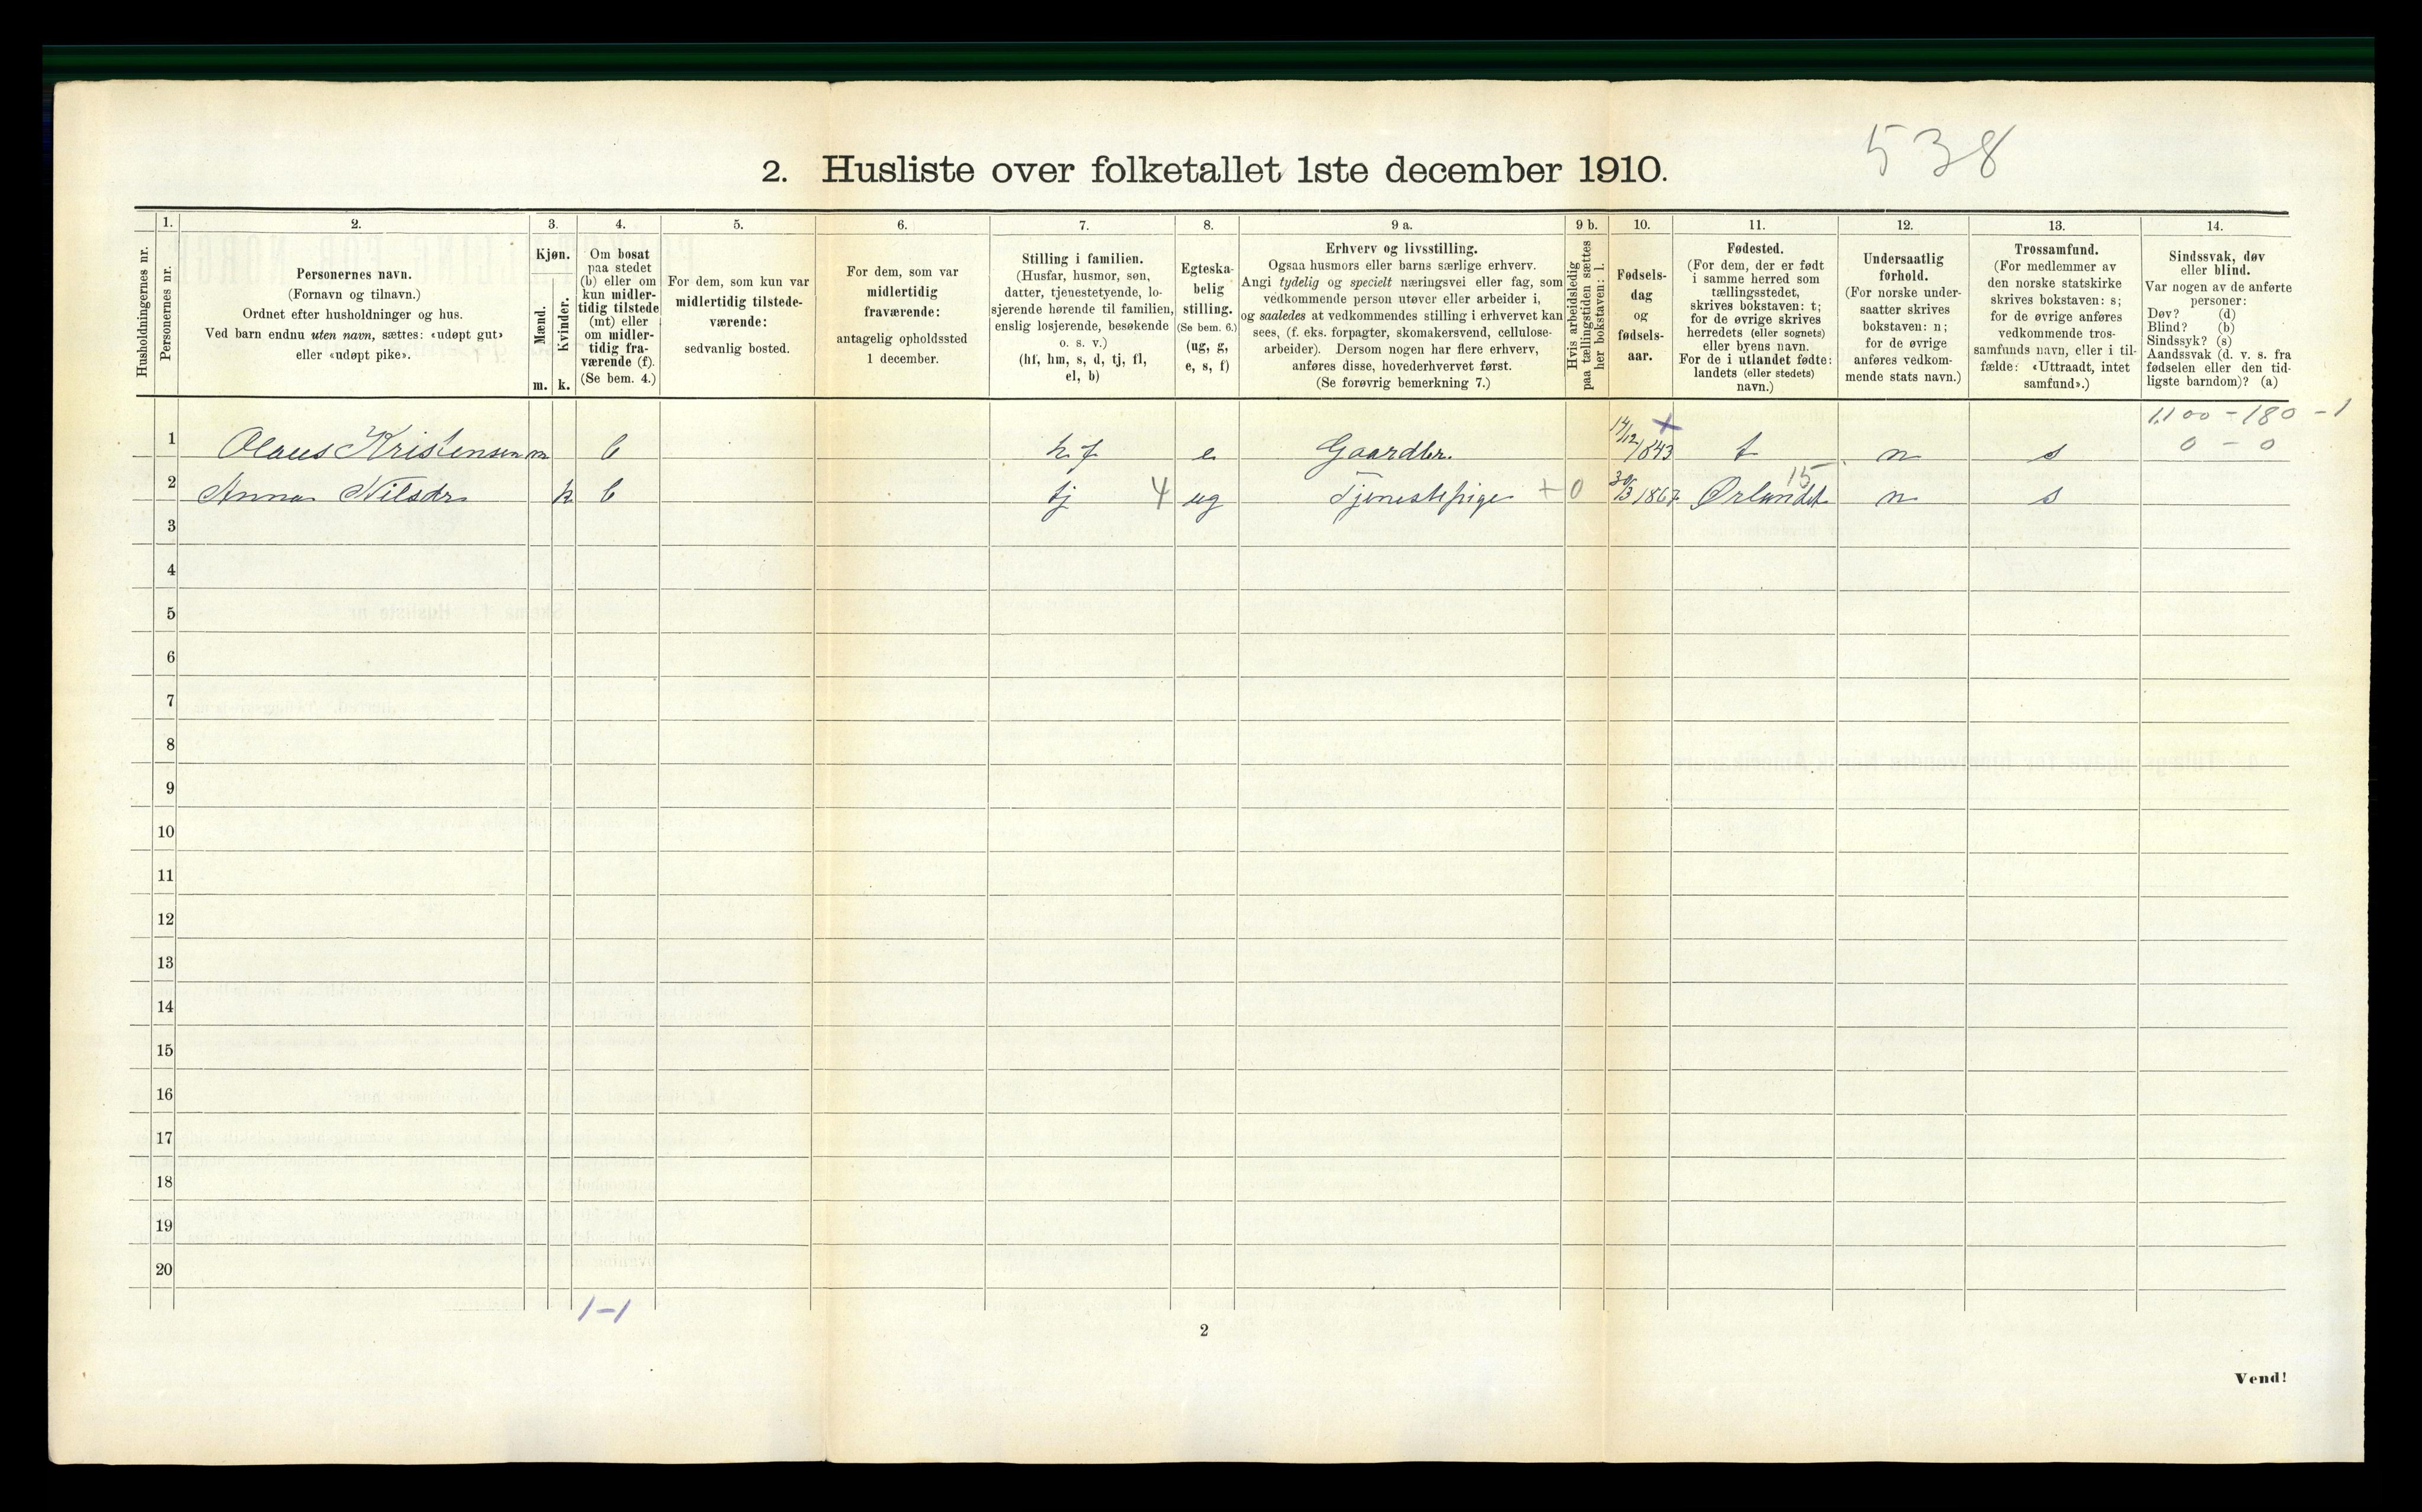 538
2. Husliste over folketallet 1ste december 1910.
Husholdningernes nr.
1.
Personernes nr.
2.
Personernes navn.
(Fornavn og tilnavn.)
Ordnet efter husholdninger og hus.
Ved barn endnu uten navn, sættes: «udøpt gut»
eller «udøpt pike».
3.
Kjøn.
Mænd.
Kvinder.
m. k.
4.
Om bosat
paa stedet
(b) eller om
kun midler-
tidig tilstede
(mt) eller
om midler-
tidig fra-
værende (f).
(Se bem. 4.)
5.
For dem, som kun var
midlertidig tilstede-
værende:
sedvanlig bosted.
6.
For dem, som var
midlertidig
fraværende:
antagelig opholdssted
1 december.
7.
Stilling i familien.
(Husfar, husmor, søn,
datter, tjenestetyende, lo-
sjerende hørende til familien,
enslig losjerende, besøkende
o. s. v.)
(hf, hm, s, d, tj, fl,
el, b)
8.
Egteska-
belig
stilling.
(Se bem. 6.)
(ug, g,
e, s, f)
9 a.
Erhverv og livsstilling.
Ogsaa husmors eller barns særlige erhverv.
Angi tydelig og specielt næringsvei eller fag, som
vedkommende person utøver eller arbeider i,
og saaledes at vedkommendes stilling i erhvervet kan
sees, (f. eks. forpagter, skomakersvend, cellulose-
arbeider). Dersom nogen har flere erhverv,
anføres disse, hovederhvervet først.
(Se forøvrig bemerkning 7.)
9 b.
Hvis arbeidsledig
paa tællingstiden sættes
her bokstaven: l.
10.
Fødsels-
dag
og
fødsels-
aar.
11.
Fødested.
(For dem, der er født
i samme herred som
tællingsstedet,
skrives bokstaven: t;
for de øvrige skrives
herredets (eller sognets)
eller byens navn.
For de i utlandet fødte:
landets (eller stedets)
navn.)
12.
Undersaatlig
forhold.
(For norske under-
saatter skrives
bokstaven: n;
for de øvrige
anføres vedkom-
mende stats navn.)
13.
Trossamfund.
(For medlemmer av
den norske statskirke
skrives bokstaven: s;
for de øvrige anføres
vedkommende tros-
samfunds navn, eller i til-
fælde: «Uttraadt, intet
samfund».)
14.
Sindssvak, døv
eller blind.
Var nogen av de anførte
personer:
Døv? (d)
Blind? (b)
Sindssyk? (s)
Aandssvak (d. v. s. fra
fødselen eller den tid-
ligste barndom)? (a)
1100 - 180 - 1
0 - 0
1 Olaus Kristensen m b hf e Gaardbr. 14/12 1843 t n s
2 Anna Nilsdr k b tj 4 ug Tjenestepige + 0 30/3 1867 Ørlandet 15 n s
3
4
5
6
7
8
9
10
11
12
13
14
15
16
17
18
19
20
1-1
2
Vend!